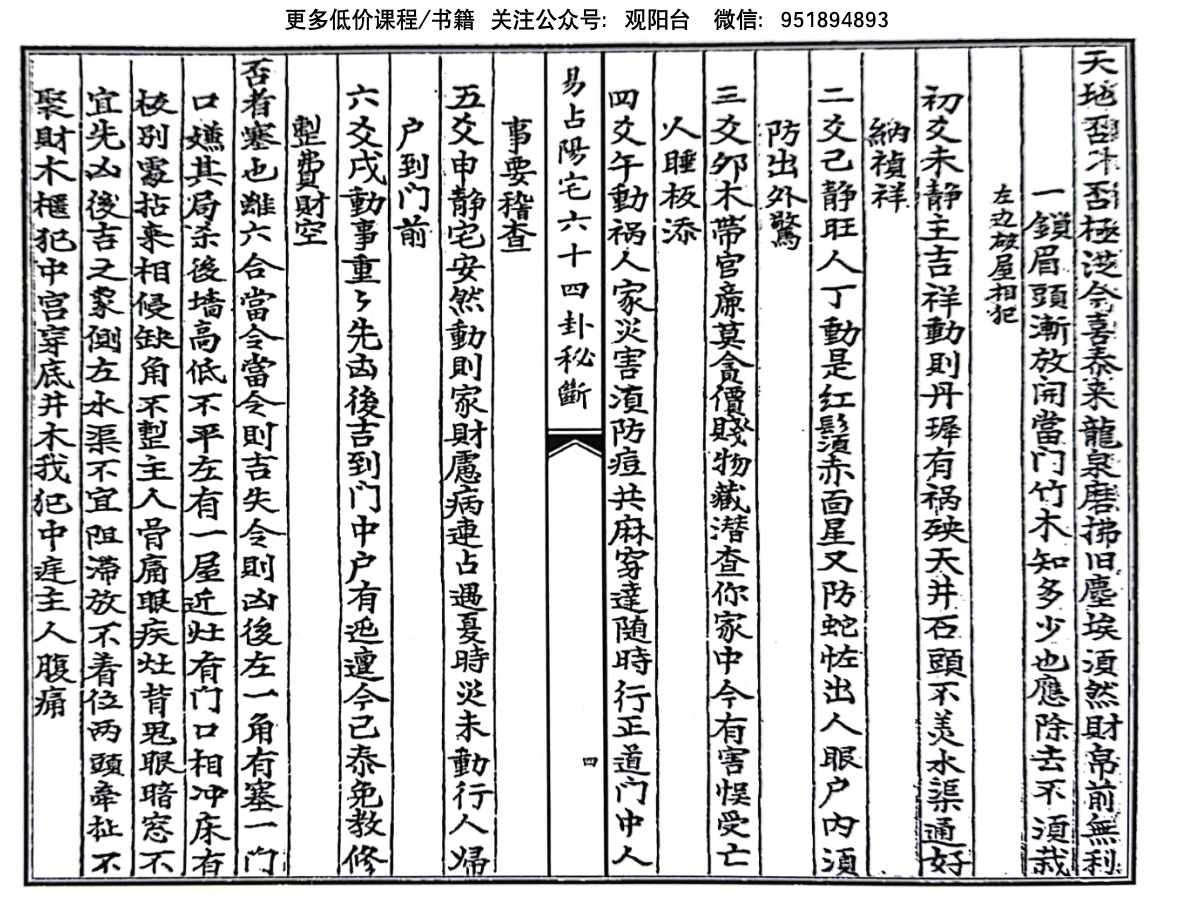 更多低价课程/书籍 关注公众号: 观阳台 微信: 951894893
天地否不否極從今喜泰来龍泉磨拂旧塵埃須然財帛前無利
一鎖眉頭漸放開當门竹木知多少也應除去不須栽
左边破屋相犯
初爻未静主吉祥動則丹墀有祸殃天井石頭不美水渠通好
納禎祥
二爻己静旺人丁動是红鬚赤面星又防蛇怪出人眼户内須
防出外驚
三爻卯木帶官廉莫貪價賤物藏潜查你家中今有害悮受亡
人睡板添
四爻午動祸人家災害須防痘共麻穿達随時行正道门中人
易占陽宅六十四卦秘斷
四
事要稽查
五爻申静宅安然動則家財慮病連占遇夏時災未動行人歸
户到门前
六爻戌動事重〻先凶後吉到门中户有迍邅今已泰免教修
整費財空
否者塞也雖六合當令當令則吉失令則凶後左一角有塞一门
口嫌其局杀後墙高低不平左有一屋近灶有门口相冲床有
桉别處拈来相侵缺角不整主人骨痛眼疾灶背鬼眼暗窓不
宜先凶後吉之象側左水渠不宜阻滞放不着位两頭牵扯不
聚財木櫃犯中宫穿底井木我犯中庭主人腹痛